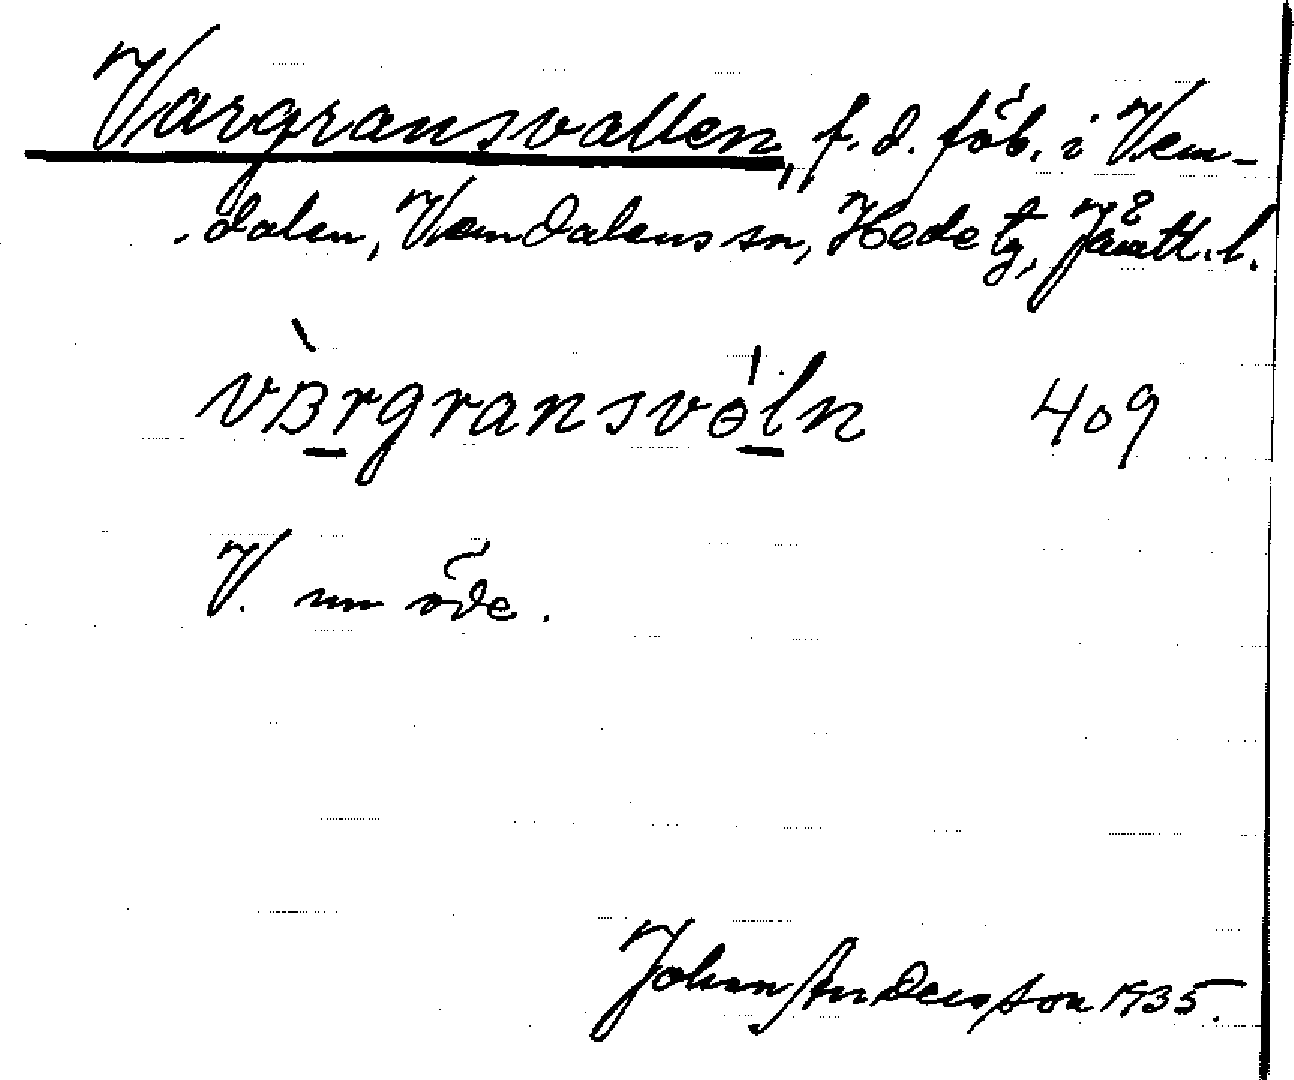 Vargransvallen, f.d. fäb. i Vem-
dalen, Vemdalens sn, Hede tg, Jämtl. l.
vàrgransvɵ́ln 409
V. nu öde.
Johan Andersson 1935.